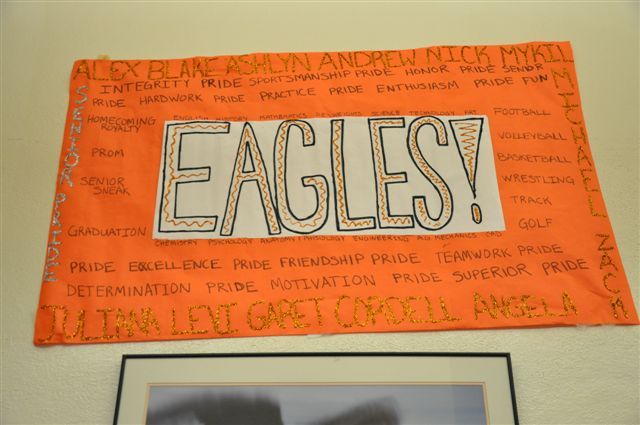 ALEX BLAKE ASHLYN ANDREW NICK MYKIL
INTEGRITY PRIDE SPORTSMANSHIP PRIDE HONOR PRIDE SENIOR
PRIDE HARDWORK PRIDE PRACTICE PRIDE ENTHUSIASM PRIDE FUN
MICHAEL ZACH
HOMECOMING
ROYALTY
PROM
SENIOR
SNEAK
GRADUATION
ENGLISH HISTORY MATHEMATICS SCIENCE TECHNOLOGY ART
EAGLES!
CHEMISTRY PSYCHOLOGY ANATOMY PHYSIOLOGY ENGINEERING AG MECHANICS CAD
FOOTBALL
VOLLEYBALL
BASKETBALL
WRESTLING
TRACK
GOLF
PRIDE EXCELLENCE PRIDE FRIENDSHIP PRIDE TEAMWORK PRIDE
DETERMINATION PRIDE MOTIVATION PRIDE SUPERIOR PRIDE
JULIANA LEVI GABET CORDELL ANGELA